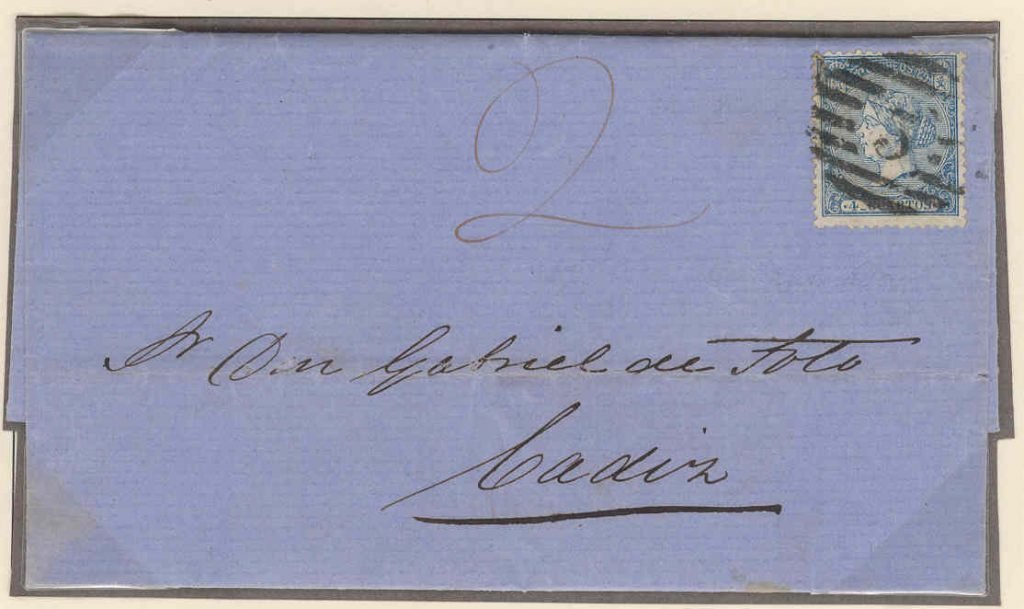 2
4 CUARTOS
Sr Don Gabriel de Soto
Cadiz